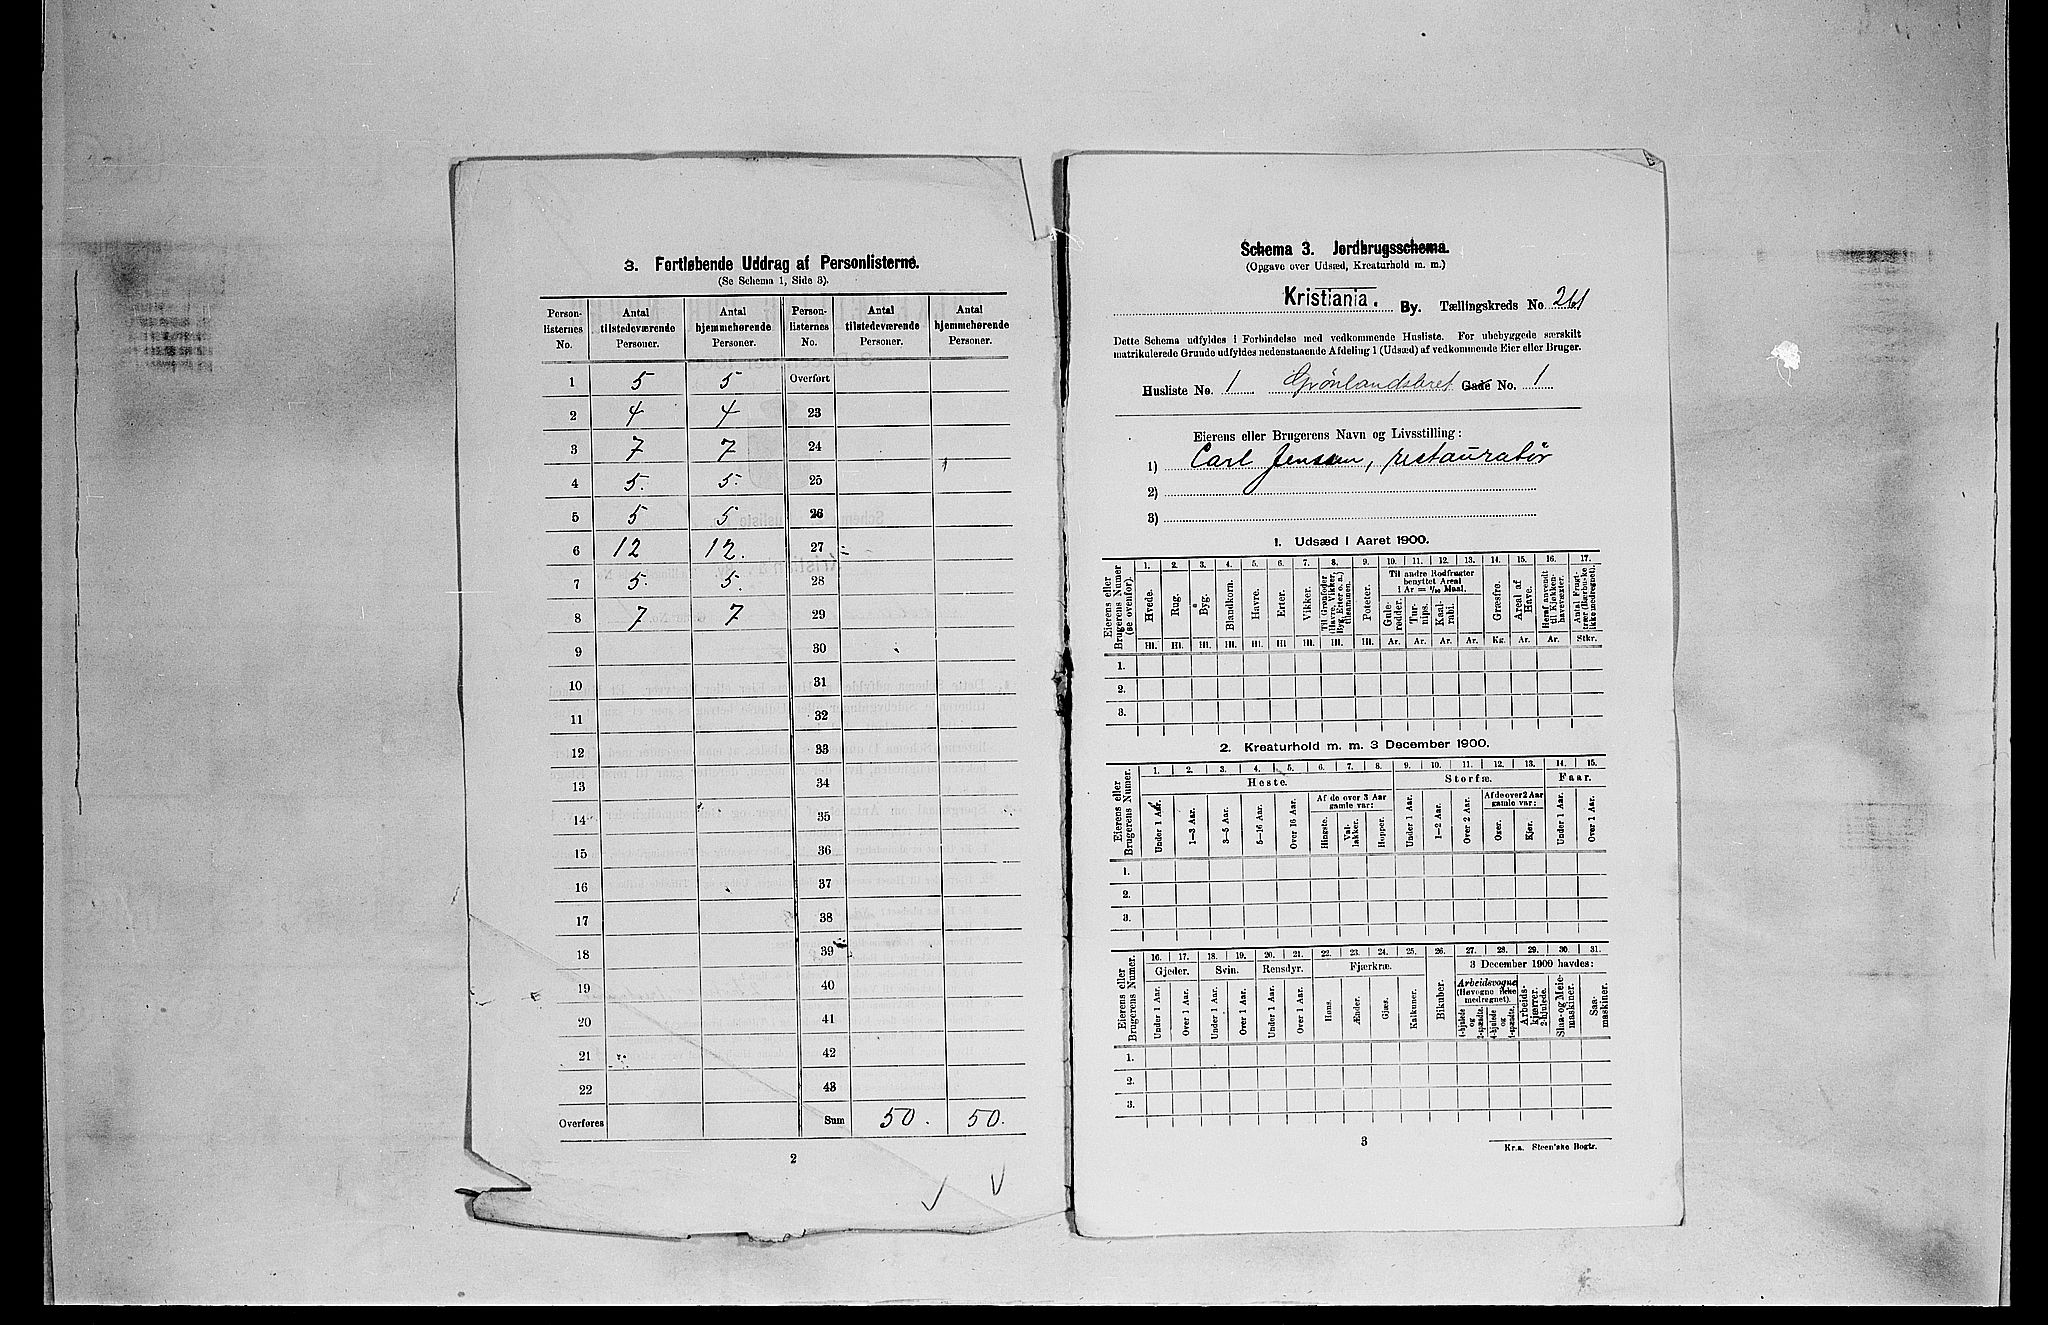 3. Fortløbende Uddrag af Personlisterne.
(Se Schema 1, Side 3).
Person-listernes No. Antal tilstedeværende Personer. Antal hjemmehørende Personer. Person-listernes No. Antal tilstedeværende Personer. Antal hjemmehørende Personer.
1 5 5 Overført
2 4 4 23
3 7 7 24
4 5. 5. 25
5 5 5 26
6 12 12. 27
7 5. 5. 28
8 7 7 29
9 30
10 31
11 32
12 33
13 34
14 35
15 36
16 37
17 38
18 39
19 40
20 41
21 42
22 43
Overføres Sum 50. 50.
2
Schema 3. Jordbrugsschema.
(Opgave over Udsæd, Kreaturhold m. m.)
Kristiania. By. Tællingskreds No. 261
Dette Schema udfyldes i Forbindelse med vedkommende Husliste. For ubebyggede særskilt
matrikulerede Grunde udfyldes nedenstaaende Afdeling 1 (Udsæd) af vedkommende Eier eller Bruger.
Husliste No. 1 Grønlandsleret Gade No. 1
Eierens eller Brugerens Navn og Livsstilling:
1) Carl Jenssen, restauratør
2)
3)
1. Udsæd i Aaret 1900.
1. 2. 3. 4. 5. 6. 7. 8. 9. 10. 11. 12. 13. 14. 15. 16. 17.
Eierens eller Brugerens Numer (se ovenfor). Hvede. Rug. Byg. Blandkorn. Havre. Erter. Vikker. Til Grønfoder (Havre, Vikker, Byg, Erter o. a.) tilsammen. Poteter. Til andre Rodfrugter benyttet Areal 1 Ar = 1/10 Maal. Gule-rødder. Tur-nips. Kaal-rabi. Græsfrø. Areal af Have. Heraf anvendt til Kjøkken-havevæxter. Antal Frugt-trær (Bærbuske ikke medregnet).
Hl. Hl. Hl. Hl. Hl. Hl Hl. Hl. Hl. Ar. Ar. Ar. Ar. Kg. Ar. Ar. Stkr.
1.
2.
3.
2. Kreaturhold m. m. 3 December 1900.
1. 2. 3. 4. 5. 6. 7. 8. 9. 10. 11. 12. 13. 14. 15.
Eierens eller Brugerens Numer. Heste. Storfæ. Faar.
Af de over 3 Aar gamle var: Af de over 2 Aar gamle var:
Under 1 Aar. 1—3 Aar. 3—5 Aar. 5—16 Aar. Over 16 Aar. Hingste. Val-lakker. Hopper. Under 1 Aar. 1—2 Aar. Over 2 Aar. Oxer. Kjør. Under 1 Aar. Over 1 Aar.
1.
2.
3.
16. 17. 18. 19. 20. 21. 22. 23. 24. 25. 26. 27. 28. 29. 30. 31.
Eierens eller Brugerens Numer. Gjeder. Svin. Rensdyr. Fjærkræ. Bikuber. 3 December 1900 havdes:
Arbeidsvogne (Høvogne ikke medregnet).
Under 1 Aar. Over 1 Aar. Under 1 Aar. Over 1 Aar. Under 1 Aar. Over 1 Aar. Høns. Ænder. Gjæs. Kalkuner. 4-hjulede og 2-spændte. 4-hjulede og 1-spændte. Arbeids-kjærrer, 2-hjulede. Slaa- og Meie-maskiner. Saa-maskiner.
1.
2.
3.
3
Kr.a. Steen'ske Bogtr.